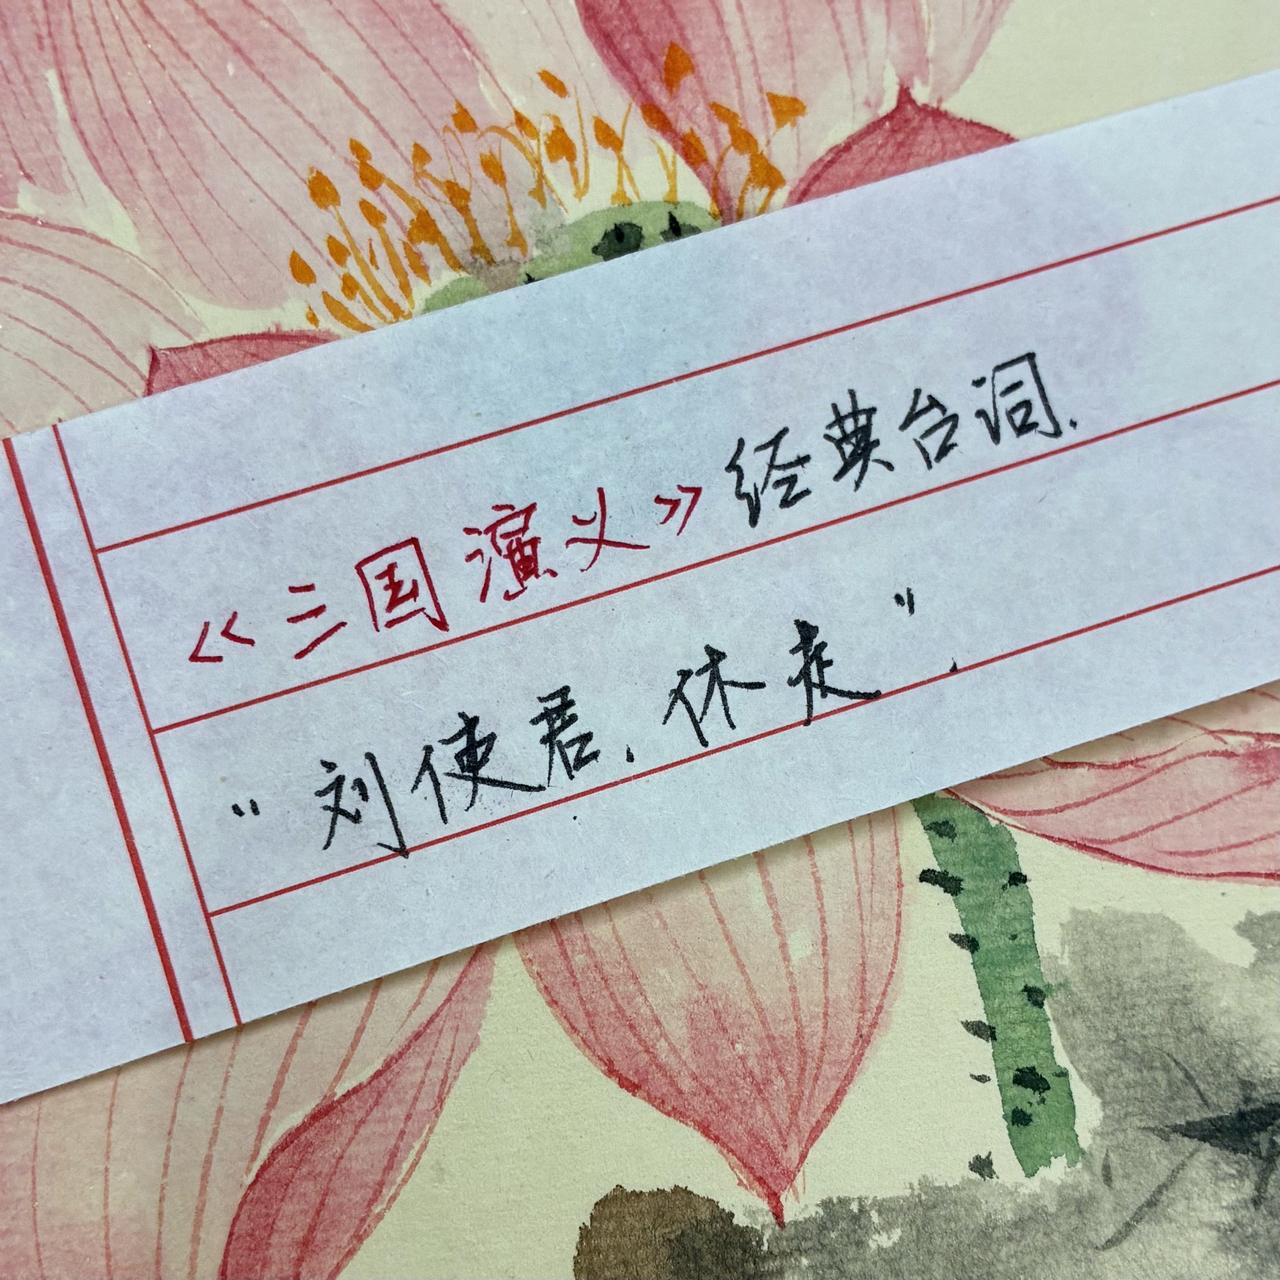 《三国演义》经典台词.
“刘使君,休走”.